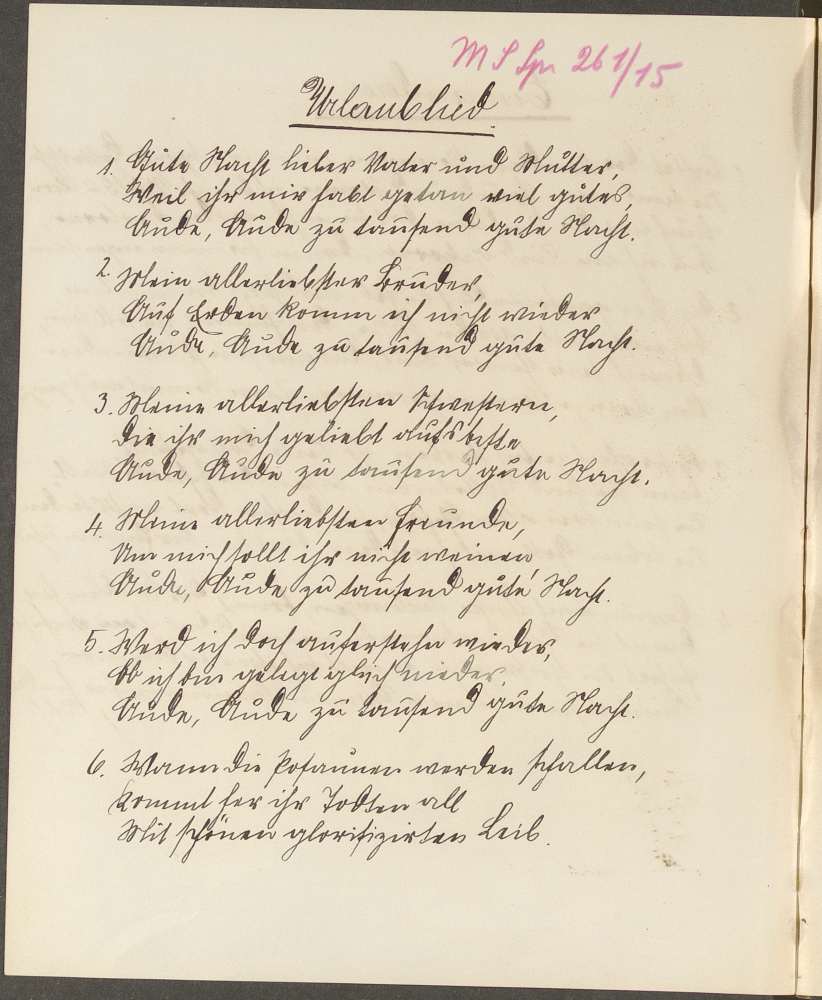 M S Spr 261/15
Urlaublied
1. Gute Nacht lieber Vater und Mutter,
Weil ihr mir habt getan viel gutes,
Aude, Aude zu tausend gute Nacht.
2. Mein allerliebster Bruder,
Auf Erden komm ich nicht wieder
Aude, Aude zu tausend gute Nacht.
3. Meine allerliebsten Schwestern,
Die ihr mich geliebt aufs beste
Aude, Aude zu tausend gute Nacht.
4. Meine allerliebsten Freunde,
Um mich sollt ihr nicht weinen,
Aude, Aude zu tausend gute Nacht.
5. Werd ich doch auferstehn wieder,
Ob ich bin gelegt gleich nieder,
Aude, Aude zu tausend gute Nacht.
6. Wann die Posaunen werden schallen,
Kommt her ihr Todten all
Mit schönen glorifizirten Leib.